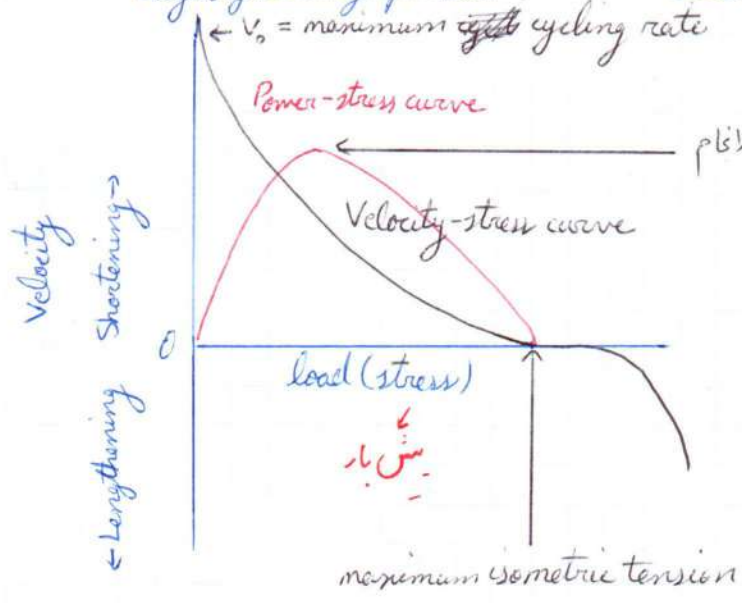 ← V₀ = maximum cycling rate
Power-stress curve
Velocity-stress curve
Velocity
Shortening→
0
load (stress)
←Lengthening
بار
maximum isometric tension